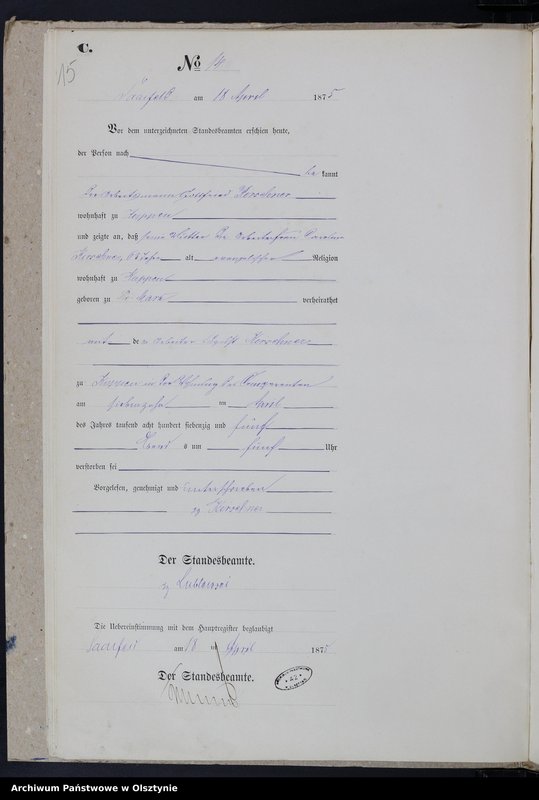 C.
15
No 14
Saalfeld am 18 April 1875
Vor dem unterzeichneten Standesbeamten erschien heute,
der Person nach
be kannt
der Arbeitsmann Gottfried Kerschner
wohnhaft zu Kuppen
und zeigte an, daß seine Mutter die Arbeiterfrau
Kerschner, alt evangelischer Religion
wohnhaft zu Kuppen
geboren zu Pr. Mark verheirathet
mit dem Arbeiter Kerschner
zu Kuppen in der Wohnung des Comparenten
am siebenzehn ten April
des Jahres tausend acht hundert siebenzig und fünf
Abend s um fünf Uhr
verstorben sei
Vorgelesen, genehmigt und unterschrieben
gz Kerschner
Der Standesbeamte.
gz
Die Uebereinstimmung mit dem Hauptregister beglaubigt
Saalfeld am 18 ten April 1875
Der Standesbeamte.
Archiwum Państwowe w Olsztynie